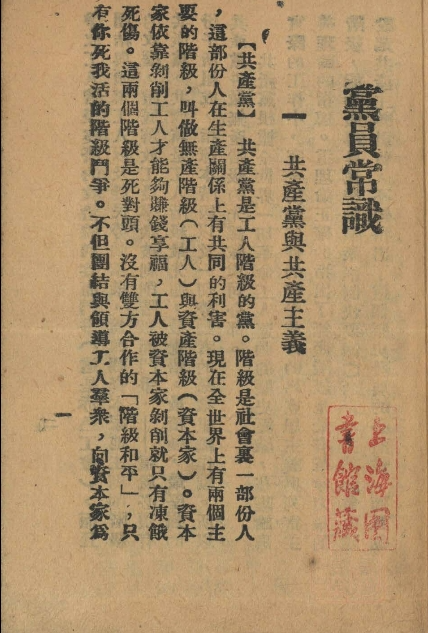 黨員常識
一　共產黨與共產主義
【共產黨】　共產黨是工人階級的黨。階級是社會裏一部份人
，這部份人在生產關係上有共同的利害。現在全世界上有兩個主
要的階級，叫做無產階級（工人）與資產階級（資本家）。資本
家依靠剝削工人才能夠賺錢享福，工人被資本家剝削就只有凍餓
死傷。這兩個階級是死對頭。沒有雙方合作的「階級和平」，只
有你死我活的階級鬥爭。不但團結與領導工人羣衆，向資本家爲
一
上海圖
書館藏